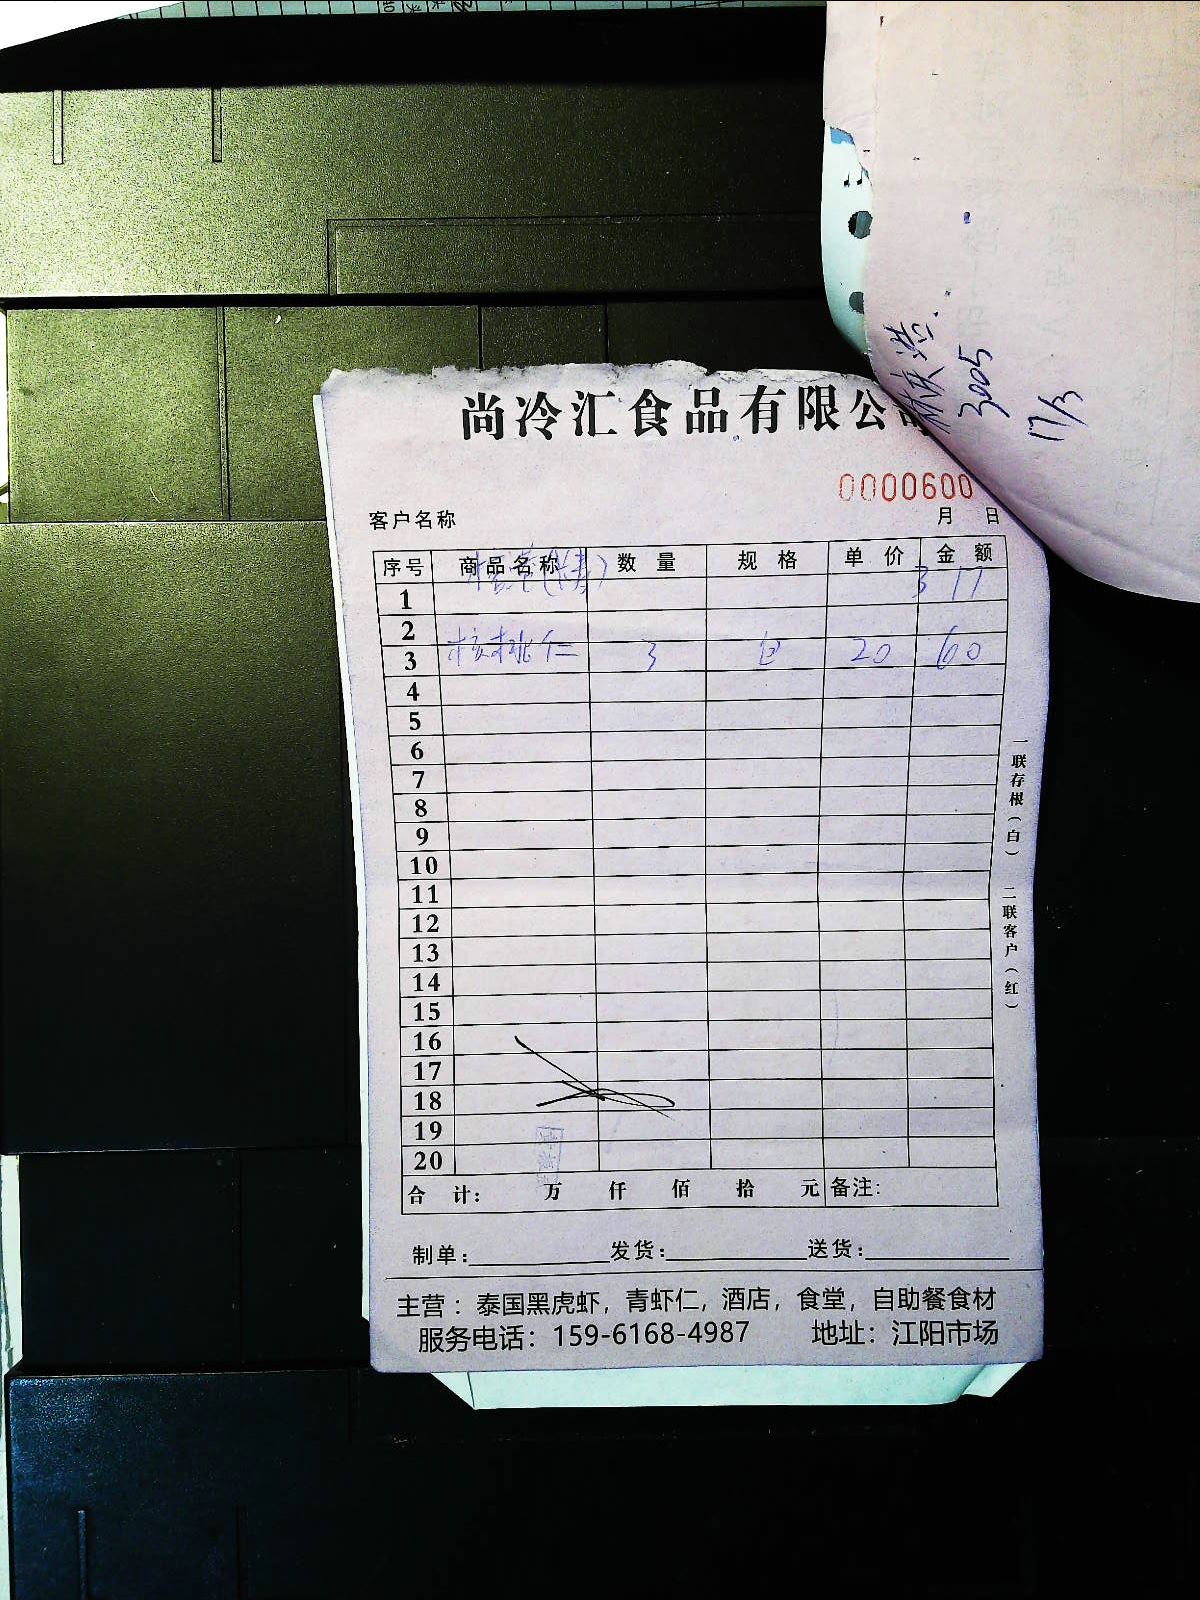 尚冷汇食品有限公
0000600
客户名称 月 日
序号 商品名称 数量 规格 单价 金额
311
1
2
3 核桃仁 3 包 20 60
4
5
6
7
8
9
10
11
12
13
14
15
16
17
18
19
20
合计: 万 仟 佰 拾 元 备注:
制单: 发货: 送货:
主营：泰国黑虎虾，青虾仁，酒店，食堂，自助餐食材
服务电话：159-6168-4987 地址：江阳市场
一联存根（白） 二联客户（红）
3005
17/3